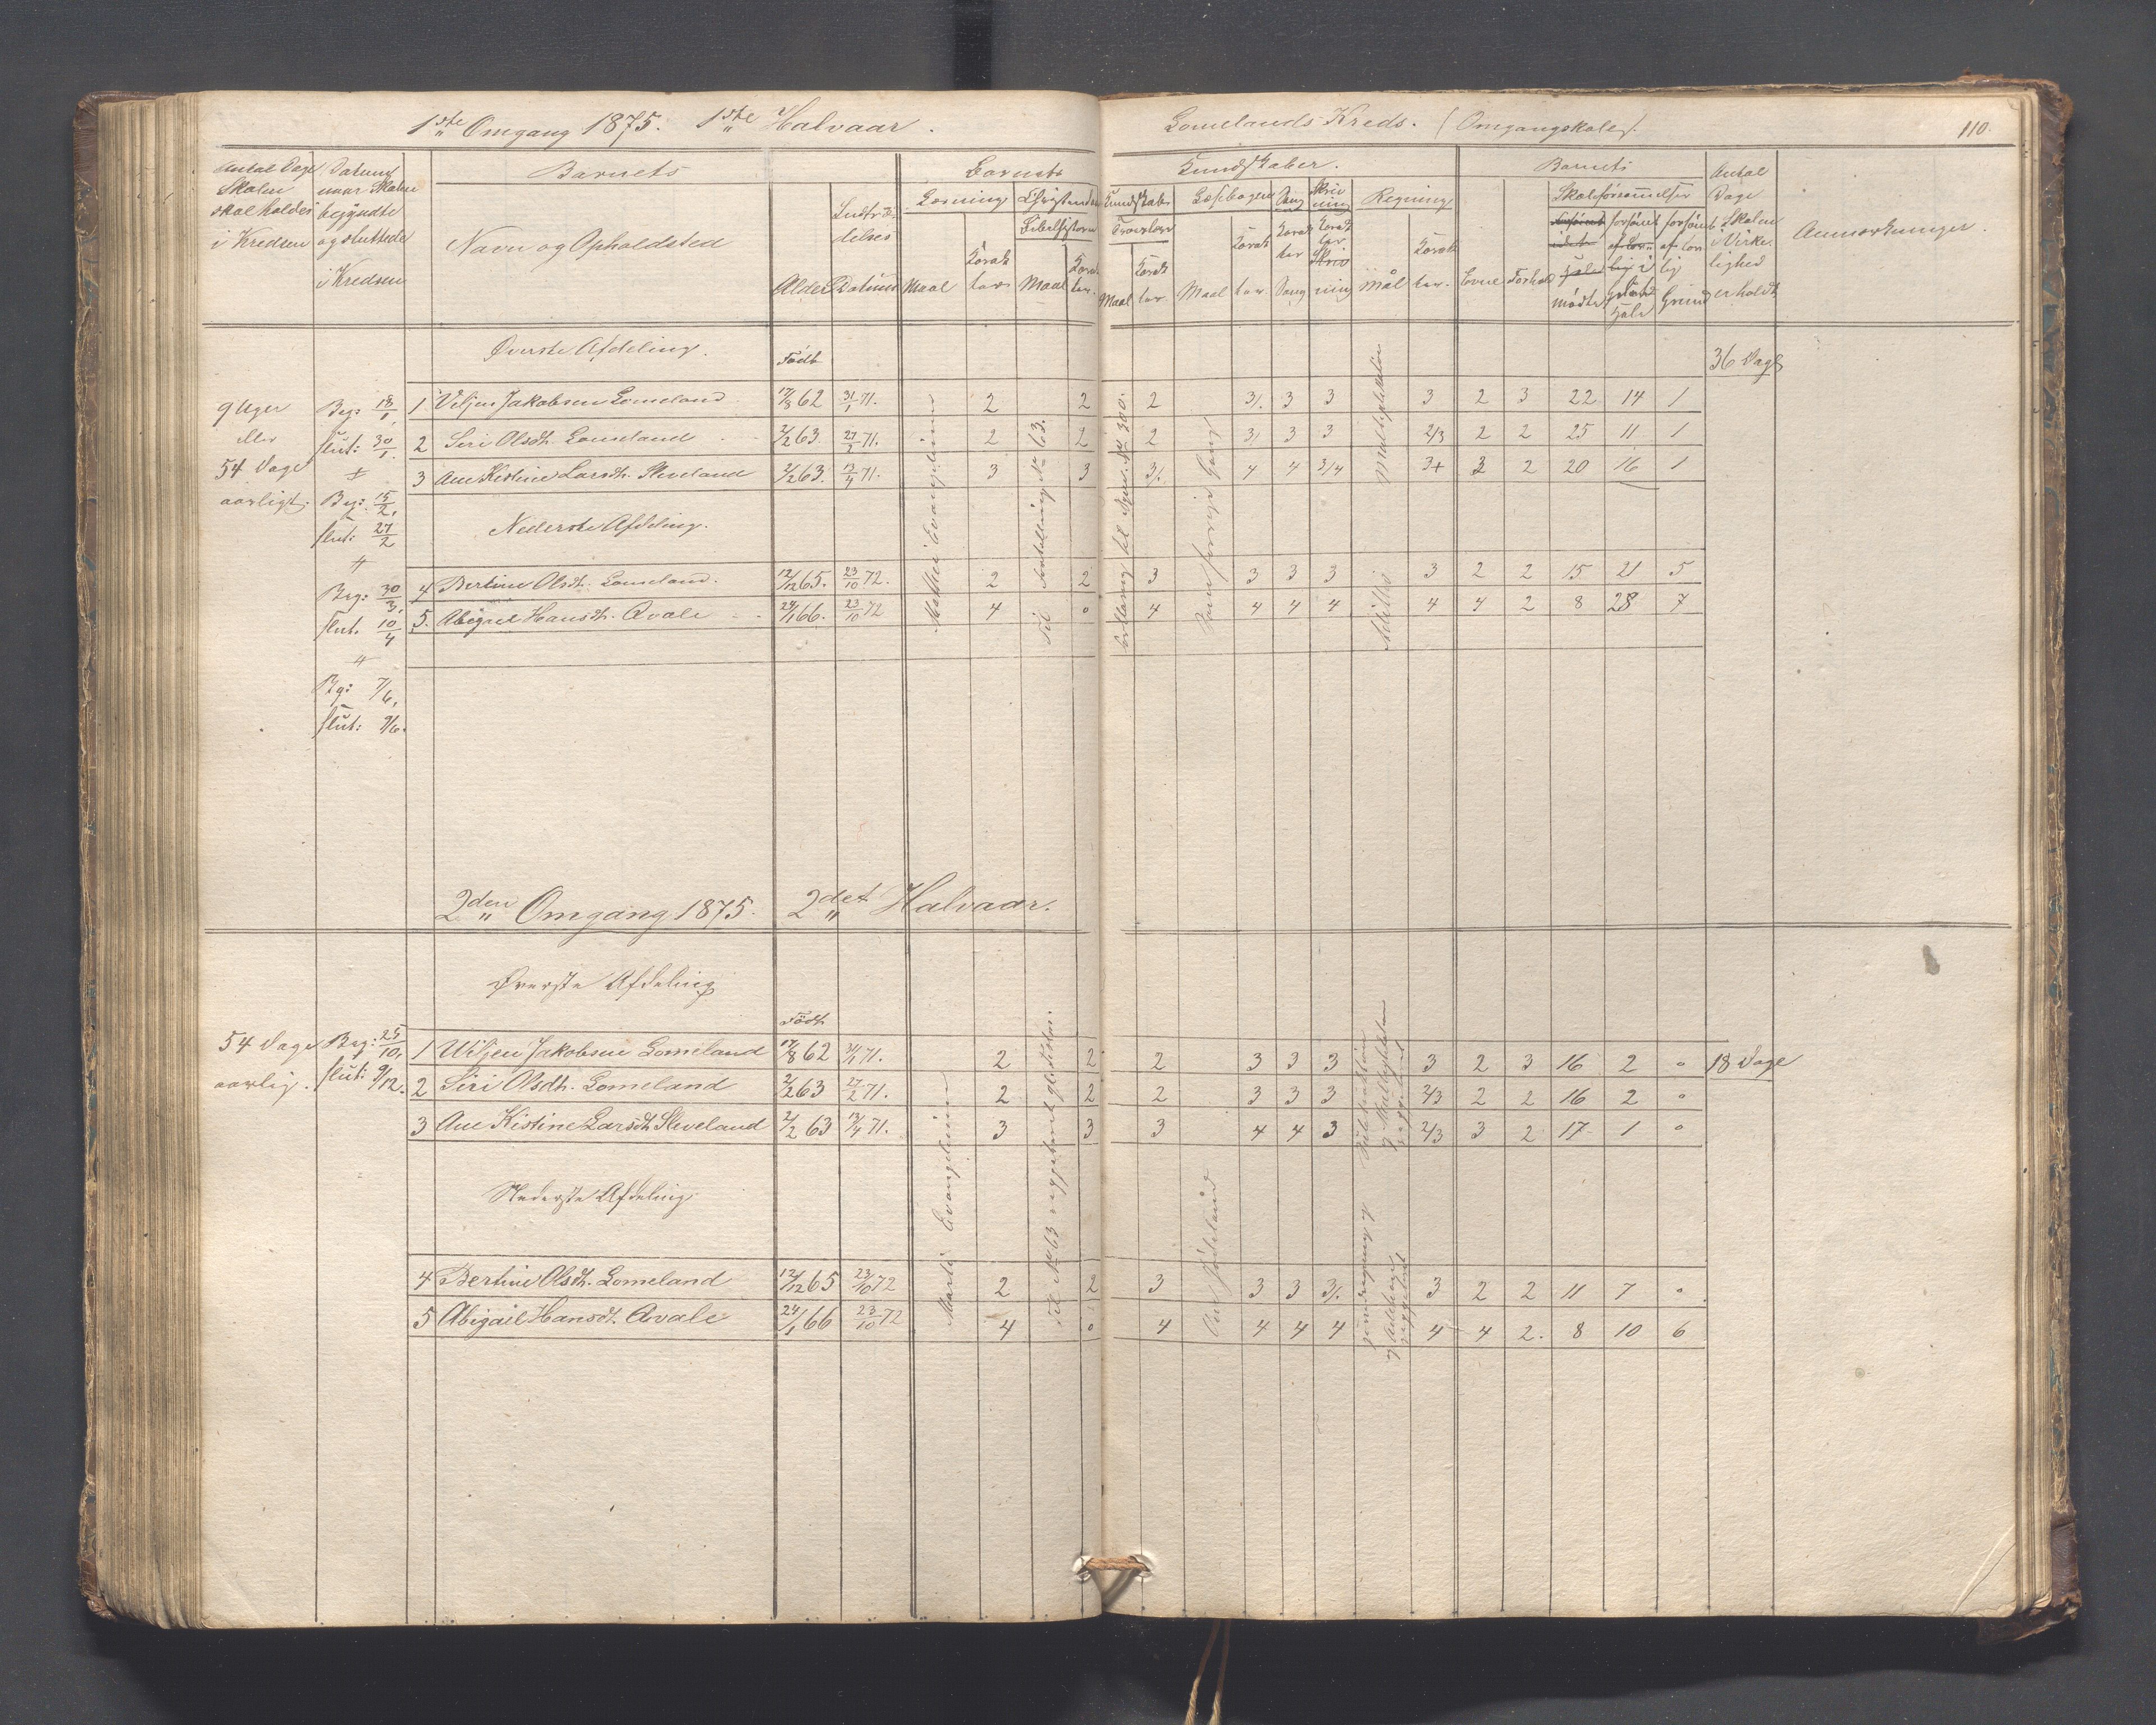 1ste Omgang 1875. 1ste Halvaar.
Lomelands Kreds. (Omgangskole).
110.
Antal Dage Skolen skal holdes i Kredsen
Datum naar Skolen begyndte og sluttede i Kredsen
Barnets
Navn og Opholdsted
Alder
Indtrædelses Datum
Barnets
Kundskaber.
Læsning
Maal
Karakter
Bibelhistorie
Maal
Karakter.
Kundskab
Troeslære
Maal
Karakter.
Læsebogen
Maal
Karakter
Sang
Karakter
Sang
Skrivning
Karakter.
Regning
Mål
Karakter.
Barnets
Evne
Forhold
Skoleforsømmelser
mødte
hele
forsømt af lovlig Grund
Antal Dage Skolen i Virkelighed er holdt
Anmærkninger.
Øverste Afdeling.
Født
36 Dage
9 Uger
eller
54 Dage
aarligt.
Beg: 18/1,
slut: 30/1.
Beg: 15/2,
slut: 27/2
Beg: 30/3,
slut. 10/4
Bg: 7/6,
slut: 9/6.
1 Viljen Jakobsen Lomeland 17/8 62 31/1 71. 2 2 2 3/. 3 3 3 2 3 22 14 1
2 Siri Olsdt. Lomeland 2/2 63 27/2 71. 2 2 2 3/. 3 3 2/3 2 2 25 11 1
3 Ane Kistine Larsdt. Sleveland 2/2 63. 13/4 71. 3 3 3/. 4 4 3/4 3+ 3 2 20 16 1
Nederste Afdeling.
4 Bertine Olsdt. Lomeland. 12/12 65. 23/10 72. 2 2 3 3 3 3 3 2 2 15 21 5
5. Abigael Hansdt. Qvale 24/1 66. 23/10 72 4 0 4 4 4 4 4 4 2 8 28 7
Mathæi Evangelium
til No 63.
Som forrige Gang
Multiplikation
2den Omgang 1875. 2det Halvaar.
Øverste Afdeling
Født
54 Dage
aarlig.
Beg: 25/10,
slut: 9/12.
1 Viljen Jakobsen Lomeland 17/8 62 31/1 71. 2 2 2 3 3 3 3 2 3 16 2 0 18 Dage
2 Siri Olsdt. Lomeland 2/2 63 27/2 71. 2 2 2 3 3 3 2/3 2 2 16 2 0
3 Ane Kistine Larsdt. Sleveland 2/2 63 13/4 71. 3 3 3 4 4 3 2/3 3 2 17 1 0
Nederste Afdeling.
4 Bertine Olsdt. Lomeland 12/12 65 23/10 72 2 2 3 3 3 3/. 3 2 2 11 7 0
5 Abigael Hansdt. Qvale 24/1 66 23/10 72 4 0 4 4 4 4 4 4 2. 8 10 6
Evangelium
til No 63